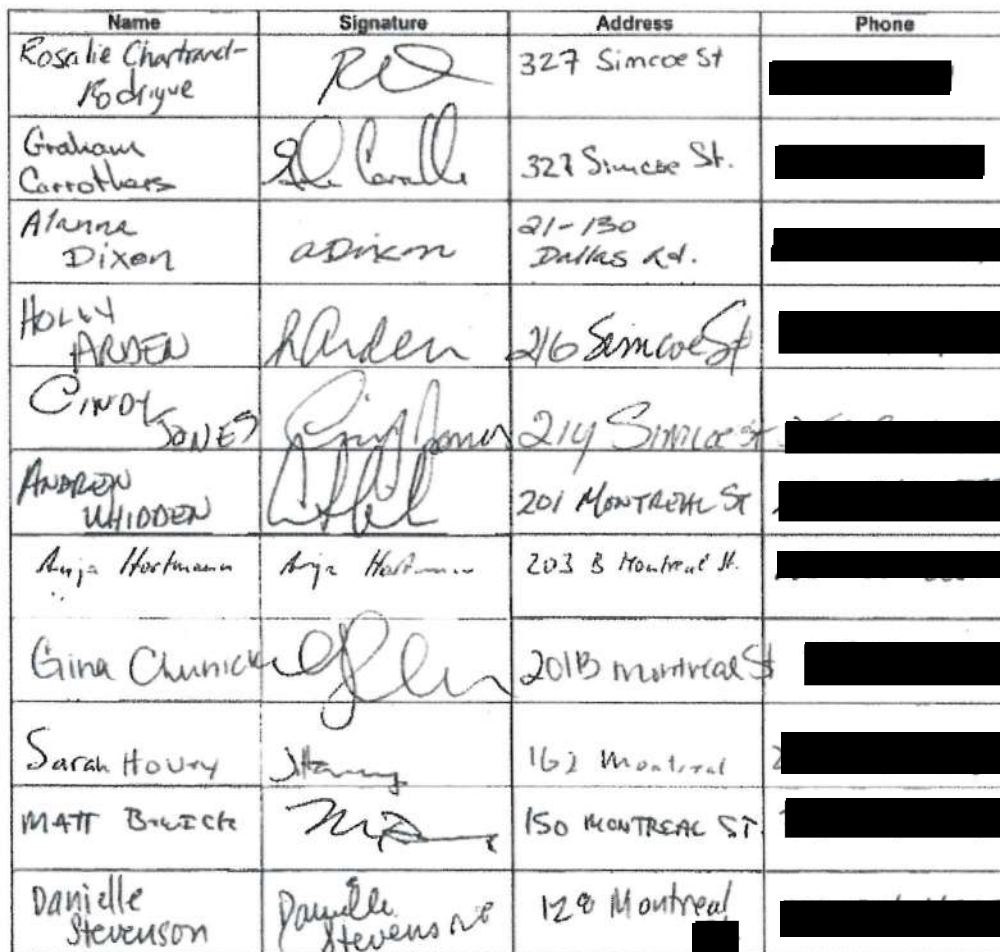 Name Signature Address Phone
Rosalie Chartrand- 327 Simcoe St
Rodrigue
Graham
Carrothers 327 Simcoe St.
Alanna 21-130
Dixon ADixon Dallas Rd.
HOLLY
ARDEN hArden 216 Simcoe St
CINDY
JONES Cindy Jones 214 Simcoe St
ANDREW
WHIDDEN 201 MONTREAL ST
Anja Hartmann Anja Hartmann 203 B Montreal St.
Gina Chunick 201B montreal St
Sarah Houry 162 Montreal
MATT 150 MONTREAL ST.
Danielle Danielle 128 Montreal
Stevenson Stevenson